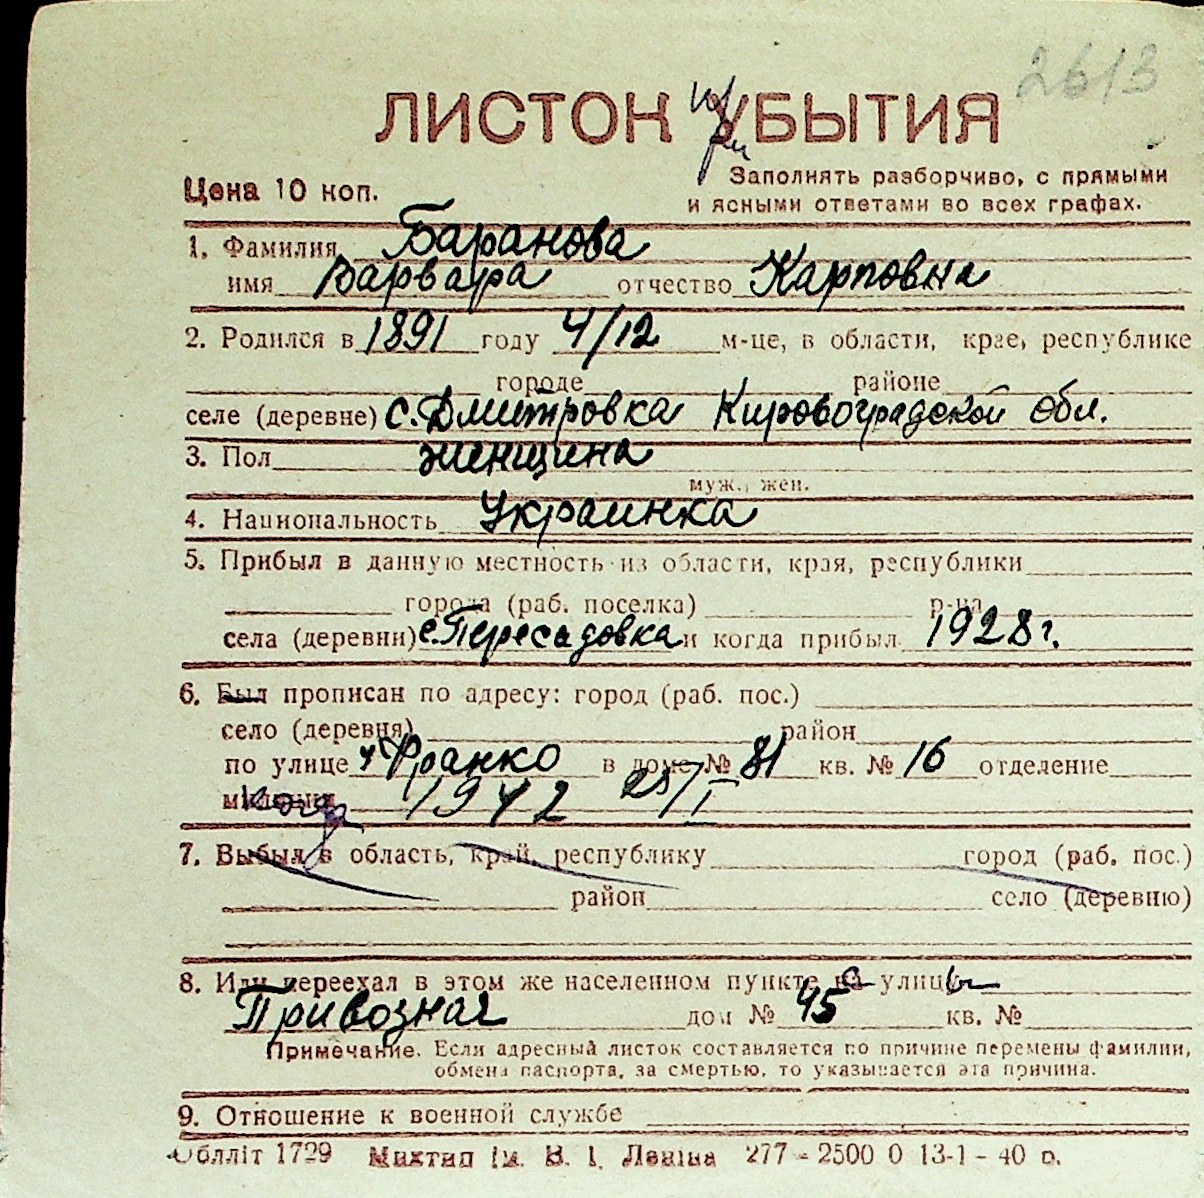 2613
ЛИСТОК при УБЫТИЯ
Цена 10 коп.
Заполнять разборчиво, с прямыми
и ясными ответами во всех графах.
1. Фамилия Баранова
имя Варвара отчество Карповна
2. Родился в 1891 году 4/12 м-це, в области, крае, республике
городе районе
селе (деревне) с. Дмитровка Кировоградской обл.
3. Пол женщина
муж., жен.
4. Национальность Украинка
5. Прибыл в данную местность из области, края, республики
города (раб. поселка) р-на
села (деревни) с. Пересадовка и когда прибыл 1928 г.
6. Был прописан по адресу: город (раб. пос.)
село (деревня) район
по улице Франко в доме № 81 кв. № 16 отделение
милиции когда 1942 25/I
7. Выбыл в область, край, республику город (раб. пос.)
район село (деревню)
8. Или переехал в этом же населенном пункте с улицы
Привозная дом № 45 кв. №
Примечание. Если адресный листок составляется по причине перемены фамилии,
обмена паспорта, за смертью, то указывается эта причина.
9. Отношение к военной службе
Облліт 1729 Миктип ім. В. І. Леніна 277 - 2500 0 13-1 - 40 р.